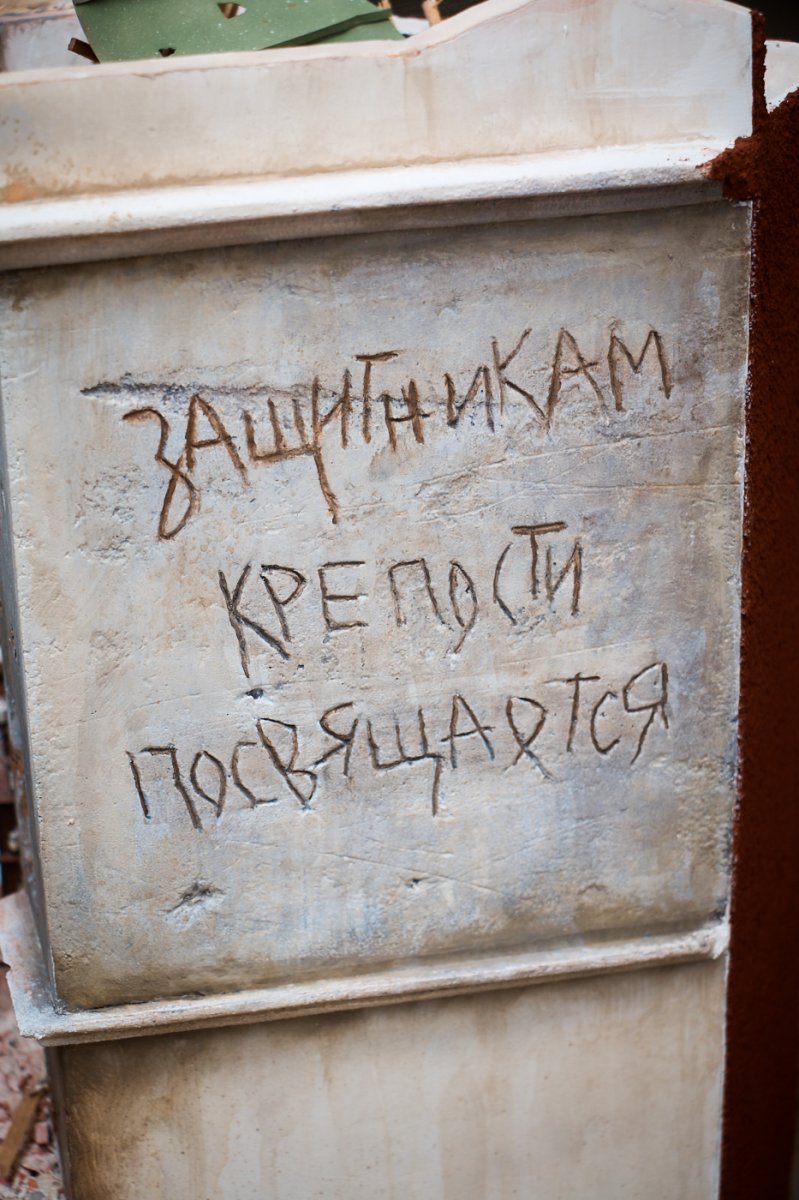 ЗАЩИТНИКАМ
КРЕПОСТИ
ПОСВЯЩАЕТСЯ